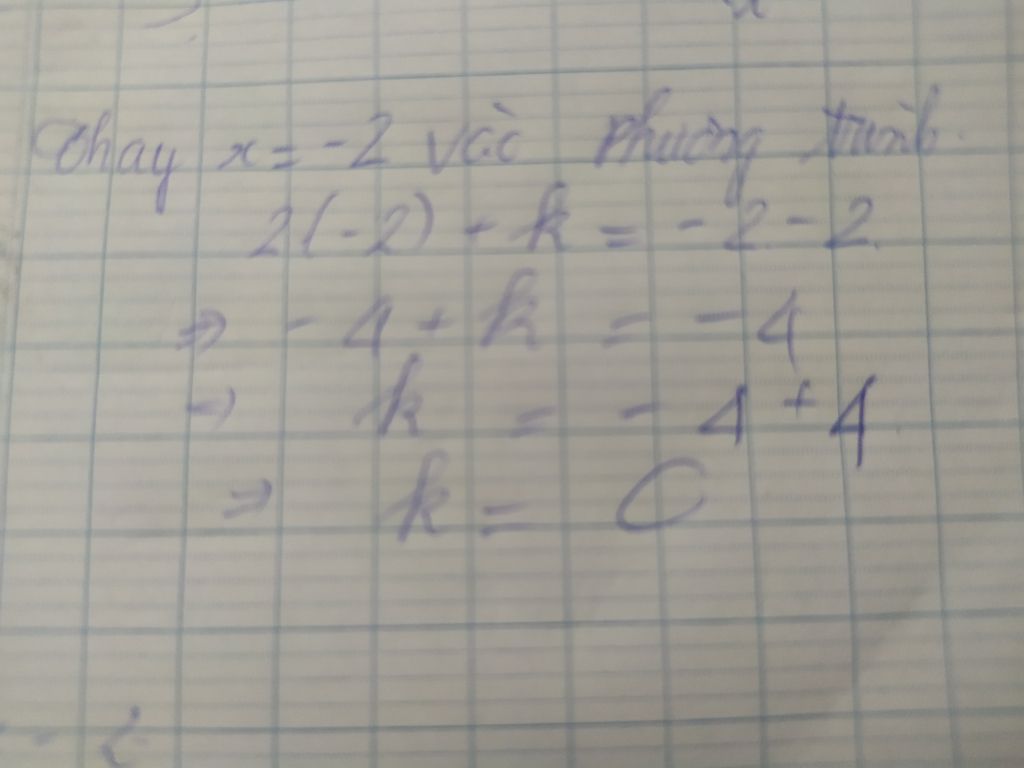 Thay x = -2 vào phương trình.
2(-2) + k = -2 - 2
⇒ -4 + k = -4
⇒ k = -4 + 4
⇒ k = 0